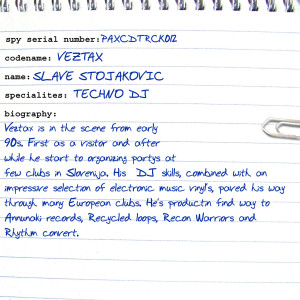 spy serial number: PAXCDTRCK012
codename: VEZTAX
name: SLAVE STOJAKOVIC
specialites: TECHNO DJ
biography:
Veztax is in the scene from early
90s. First as a visitor and after
while he start to organizing partys at
few clubs in Slovenija. His DJ skills, combined with an
impressive selection of electronic music vinyl's, paved his way
through many European clubs. He's productin find way to
Annunaki records, Recycled loops, Recon Warriors and
Rhythm convert.